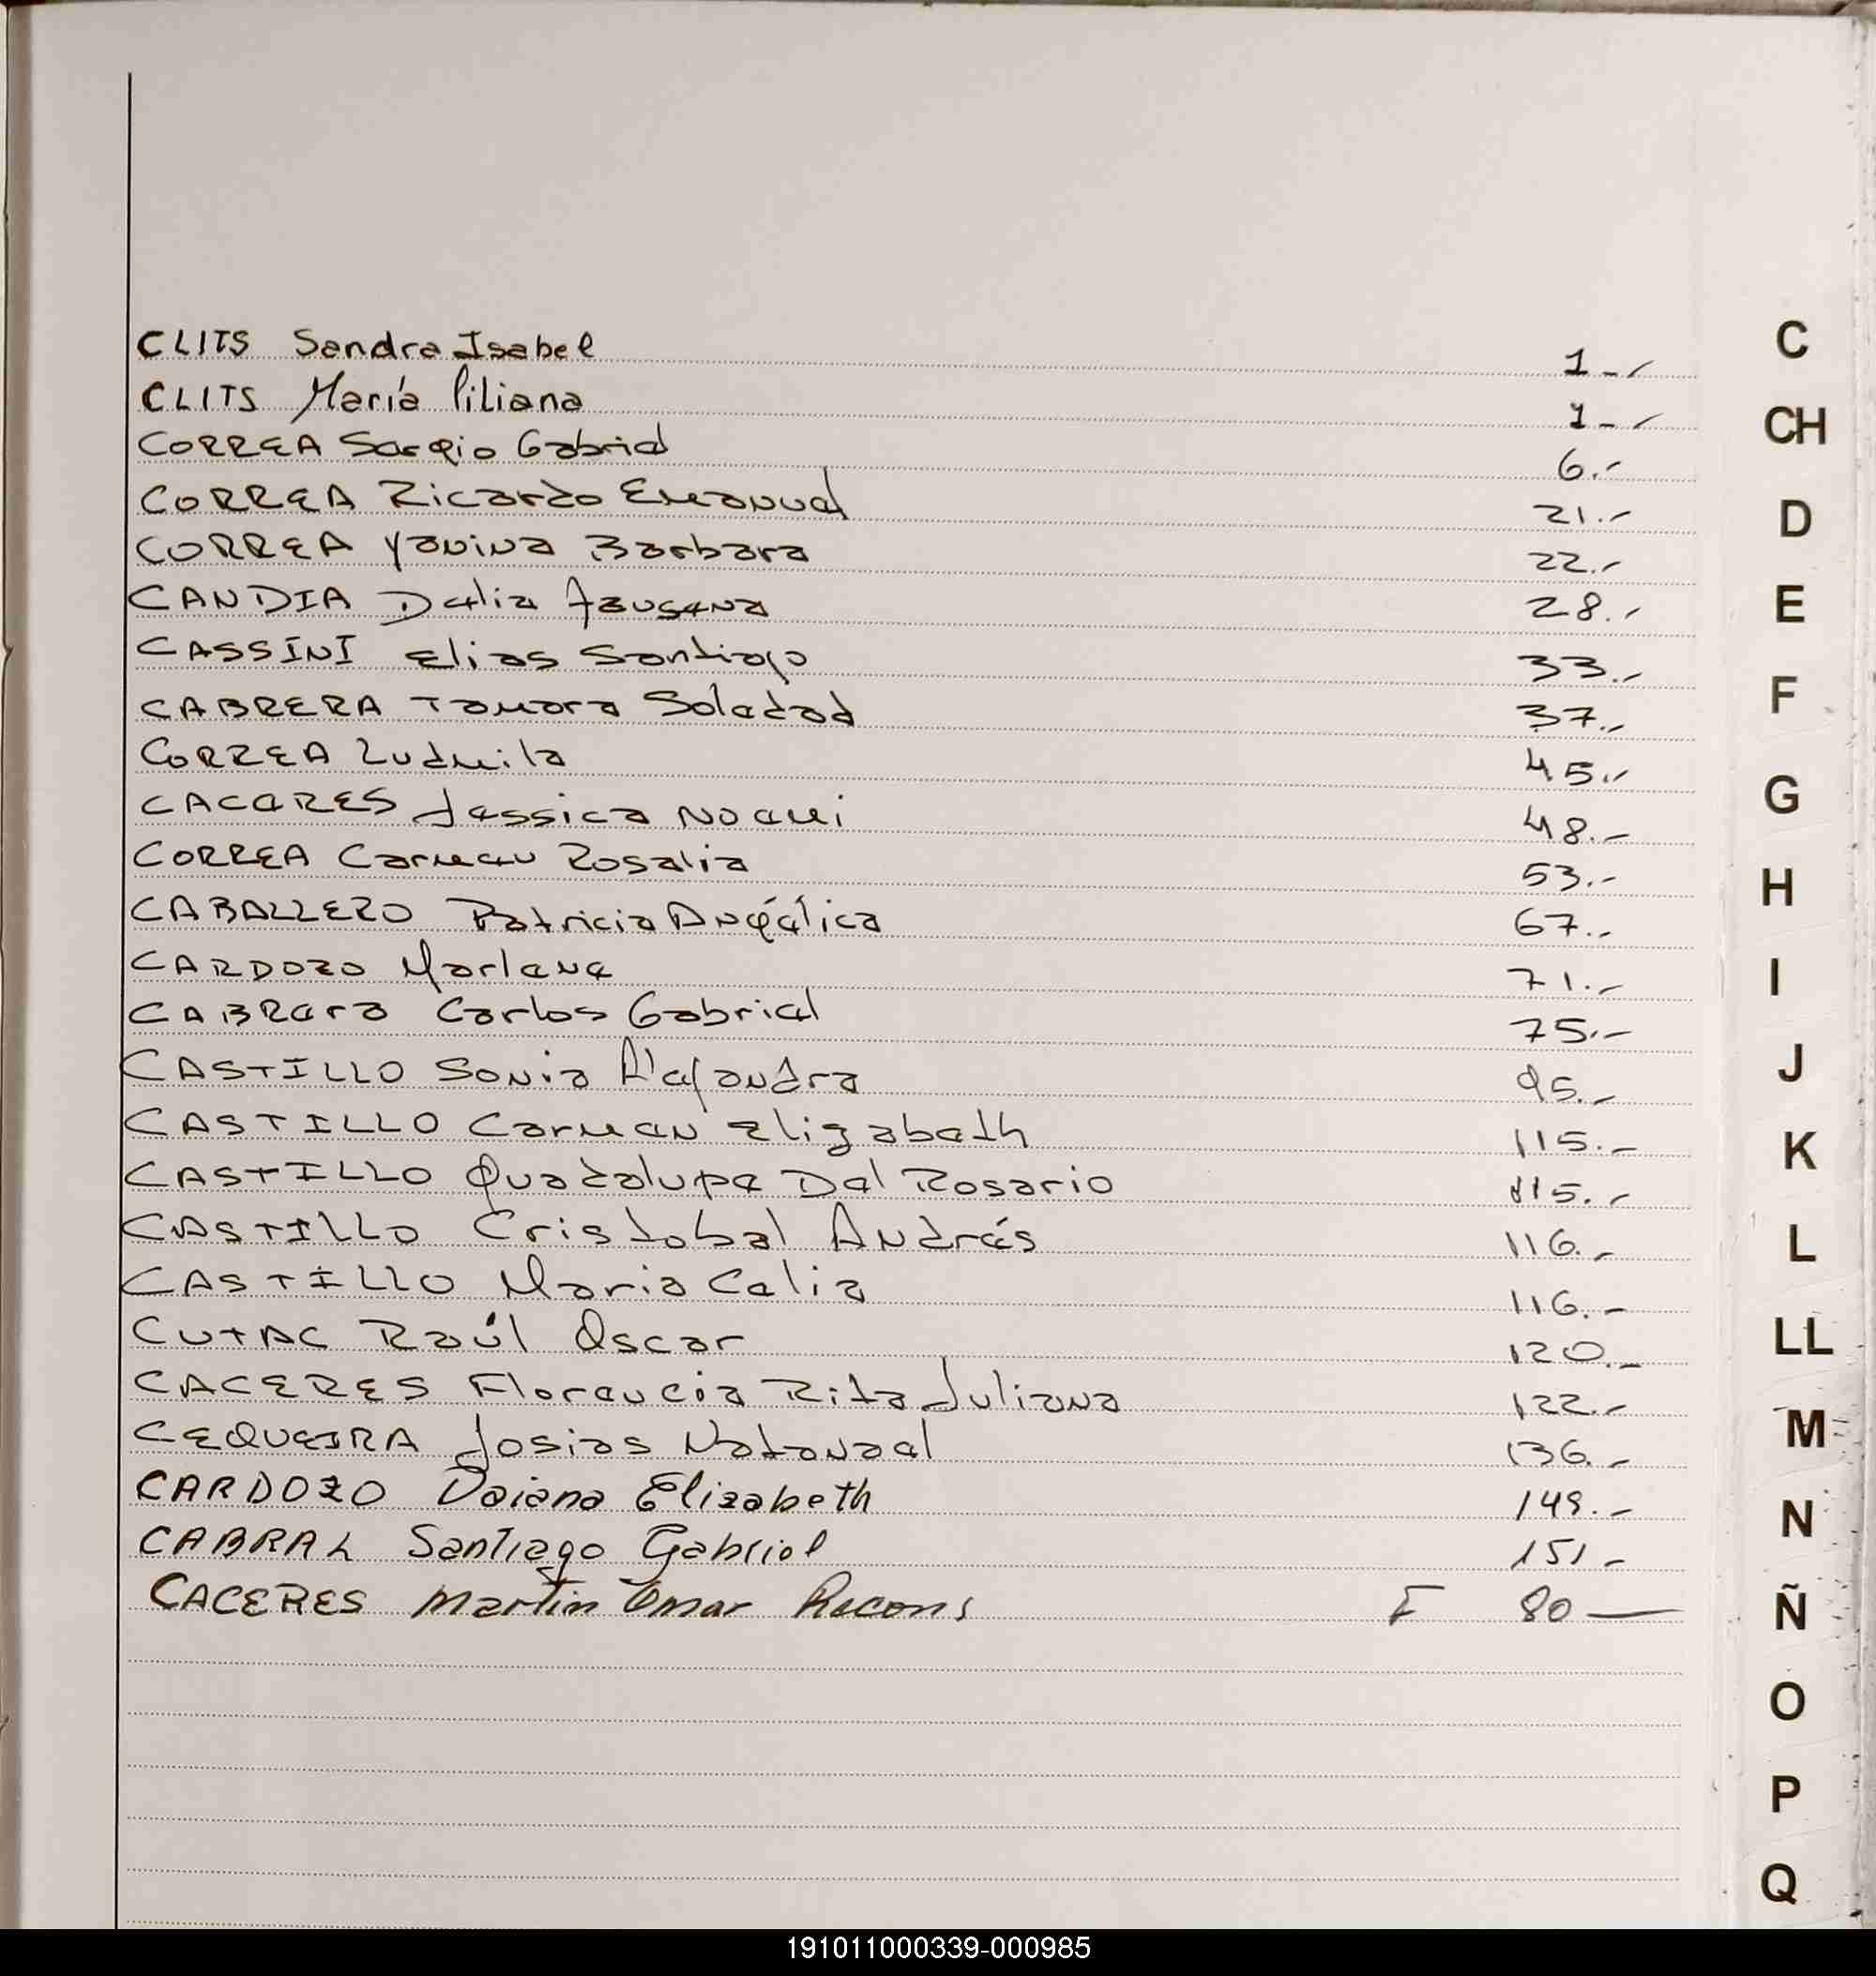 CLITS Sandra Isabel 1.-
CLITS María Liliana 1.-
CORREA Sergio Gabriel 6.-
CORREA Ricardo Emanuel 21.-
CORREA Yanina Barbara 22.-
CANDIA Delia Azusena 28.-
CASSINI Elias Santiago 33.-
CABRERA Tamara Soledad 37.-
CORREA Ludmila 45.-
CACERES Jessica Noemi 48.-
CORREA Carmen Rosalia 53.-
CABALLERO Patricia Angélica 67.-
CARDOZO Marlene 71.-
CABRera Carlos Gabriel 75.-
CASTILLO Sonia Alejandra 95.-
CASTILLO Carmen Elizabeth 115.-
CASTILLO Guadalupe Del Rosario 115.-
CASTILLO Cristobal Andrés 116.-
CASTILLO Maria Celia 116.-
CUTAC Raúl Oscar 120.-
CACERES Florencia Rita Juliana 122.-
CEQUEIRA Josias Natanael 136.-
CARDOZO Daiana Elizabeth 149.-
CABRAL Santiago Gabriel 151-
CACERES Martin Omar F 80—
C
CH
D
E
F
G
H
I
J
K
L
LL
M
N
Ñ
O
P
Q
191011000339-000985